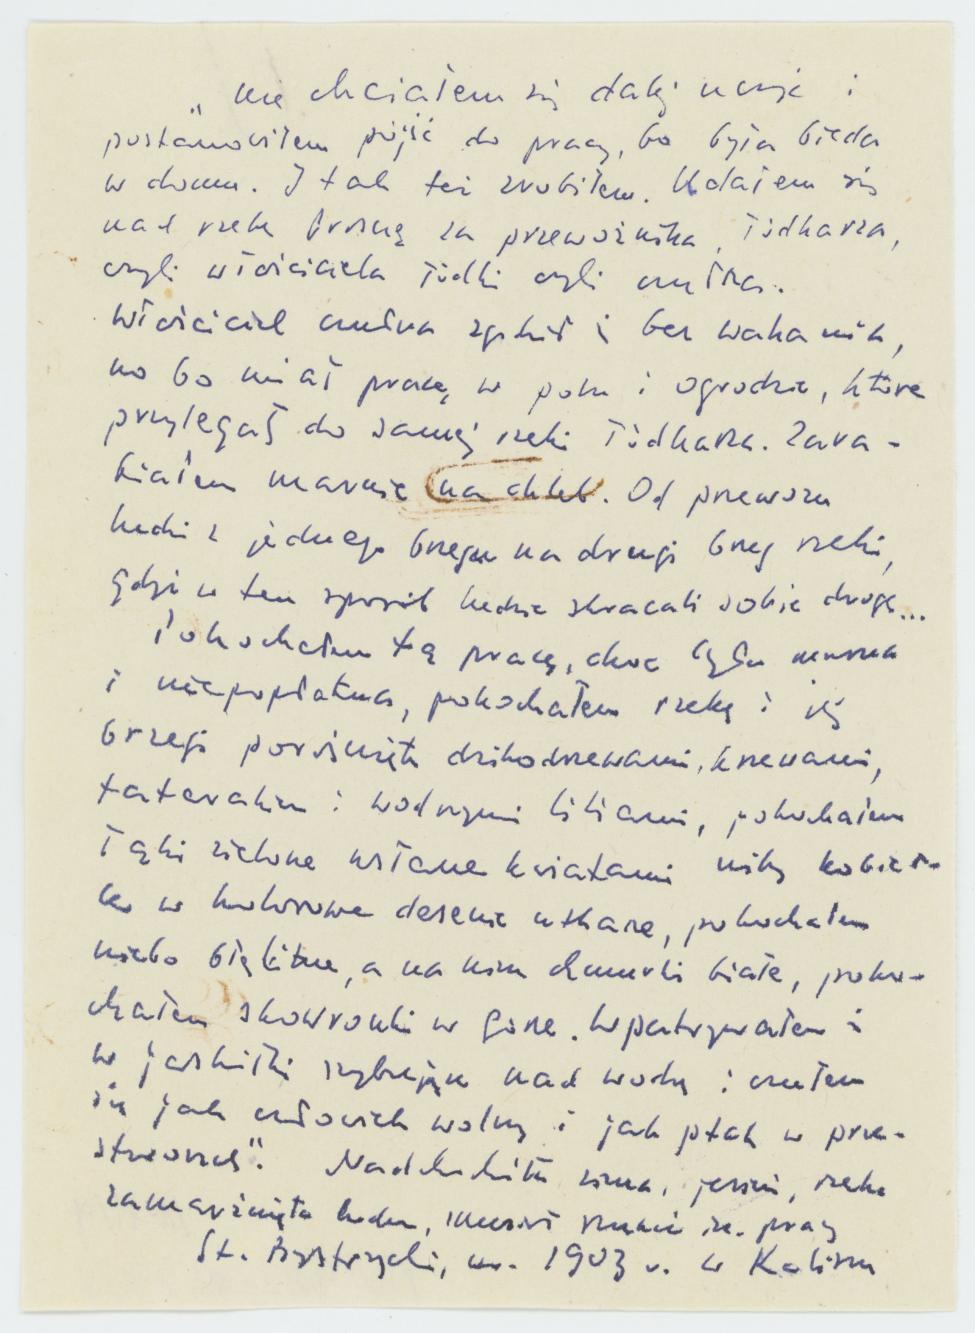 „ nie chciałem się dalej uczyć i
postanowiłem pójść do pracy, bo była bieda
w domu. I tak też zrobiłem. Udałem się
nad rzekę Prosnę za przewoźnika, łódkarza,
czyli właściciela łódki czyli czułna.
Właściciel czułna zgodził się bez wahania,
no bo miał pracę w polu i ogrodzie, które
przylegał do samej rzeki łódkarza. Zara-
białem marnie na chleb. Od przewozu
ludzi z jednego brzegu na drugi brzeg rzeki,
gdyż w ten sposób ludzie skracali sobie drogę...
Pokochałem tą pracę, choć była marna
i niepopłatna, pokochałem rzekę i jej
brzegi porośnięte dzikodrzewami, krzewami,
tatarakiem i wodnymi liliami, pokochałem
łąki zielone usłane kwiatami niby kobier-
ce w kolorowe desenie utkane, pokochałem
niebo błękitne, a na nim chmurki białe, poko-
chałem skowronki w górze. Wpatrywałem się
w jaskółki szybujące nad wodą i czułem
się jak człowiek wolny i jak ptak w prze-
stworzach”. Nadchodziła zima, jesień, rzeka
zamarznięta lodem, musiał szukać in. pracy
St. Bystrzycki, ur. 1903 r. w Kaliszu